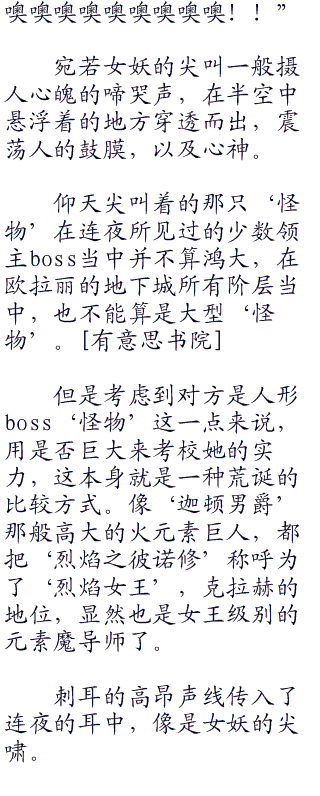 噢噢噢噢噢噢噢噢噢！！”
宛若女妖的尖叫一般摄
人心魄的啼哭声，在半空中
悬浮着的地方穿透而出，震
荡人的鼓膜，以及心神。
仰天尖叫着的那只‘怪
物’在连夜所见过的少数领
主boss当中并不算鸿大，在
欧拉丽的地下城所有阶层当
中，也不能算是大型‘怪
物’。[有意思书院]
但是考虑到对方是人形
boss‘怪物’这一点来说，
用是否巨大来考校她的实
力，这本身就是一种荒诞的
比较方式。像‘迦顿男爵’
那般高大的火元素巨人，都
把‘烈焰之彼诺修’称呼为
了‘烈焰女王’，克拉赫的
地位，显然也是女王级别的
元素魔导师了。
刺耳的高昂声线传入了
连夜的耳中，像是女妖的尖
啸。